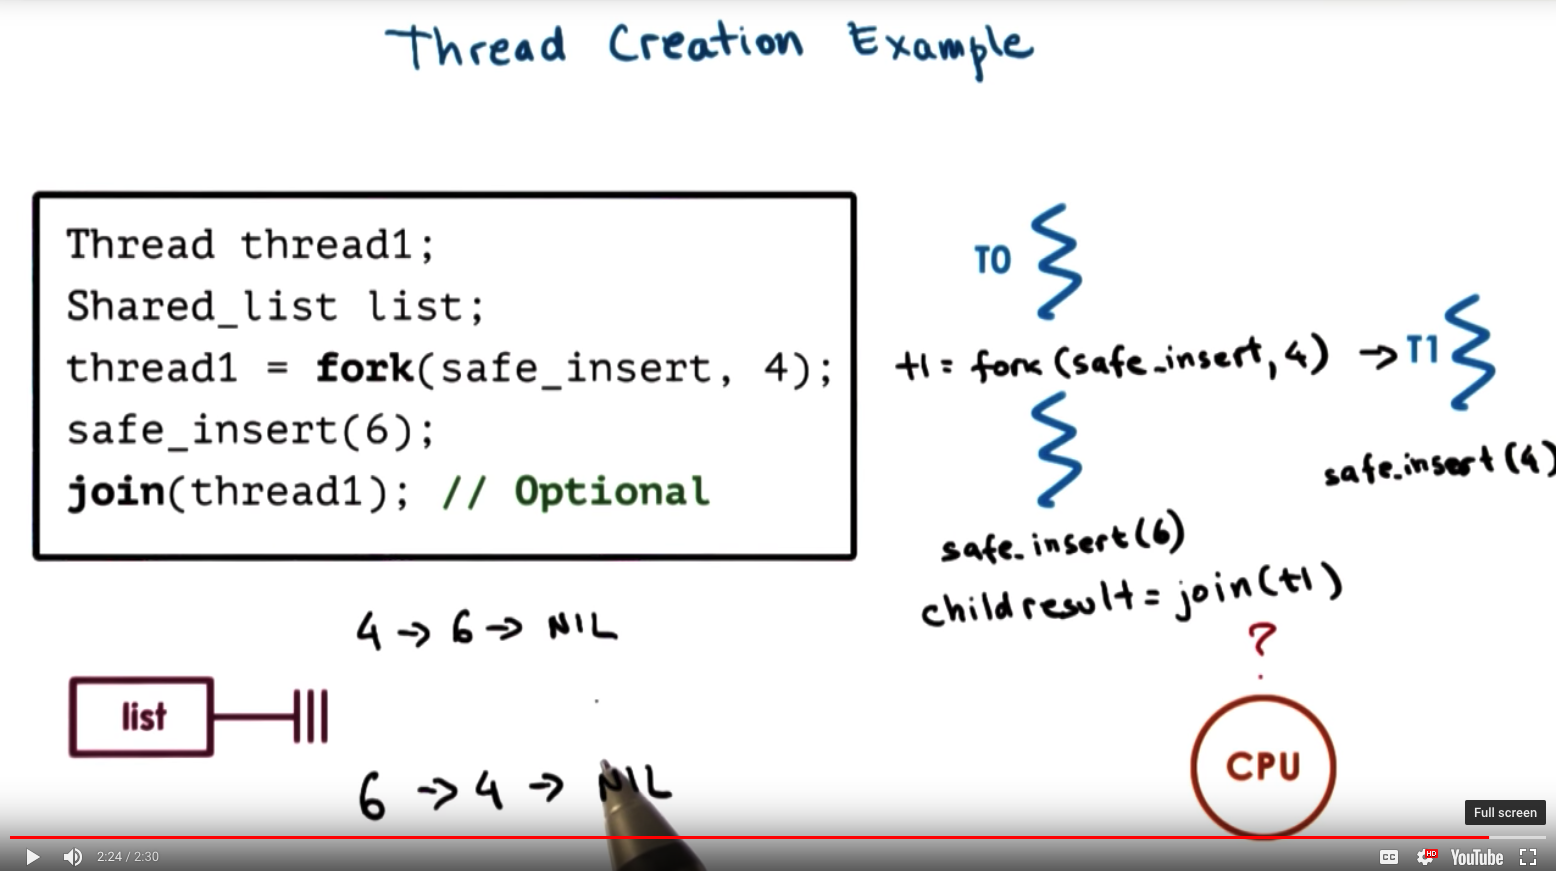 Thread Creation Example
Thread thread1;
Shared_list list;
thread1 = fork(safe_insert, 4);
safe_insert(6);
join(thread1); // Optional
T0
t1 = fork (safe_insert, 4) → T1
safe_insert (4)
safe_insert (6)
child result = join (t1)
?
4 → 6 → NIL
list
6 → 4 → NIL
CPU
Full screen
2:24 / 2:30
CC
HD
YouTube